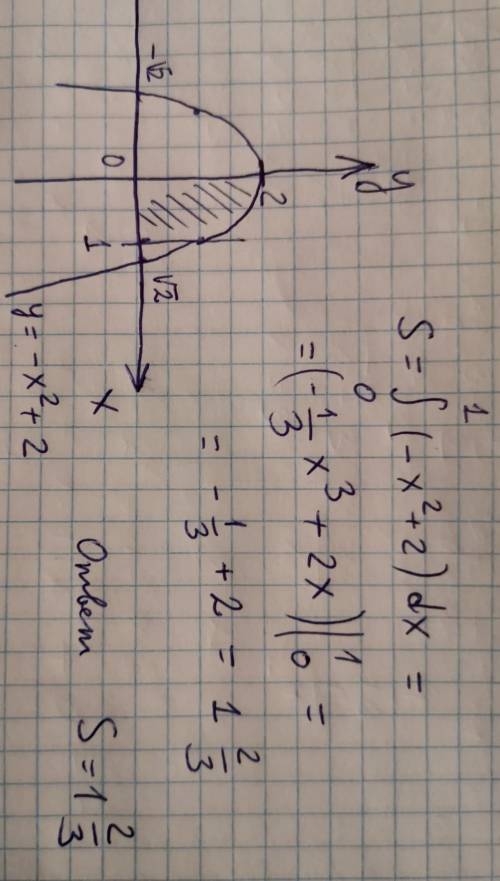 y
2
-√2
0
1
√2
x
y = -x² + 2
S = ∫₀¹ (-x² + 2) dx =
= (-1/3 x³ + 2x) |₀¹ =
= -1/3 + 2 = 1 2/3
Ответ S = 1 2/3